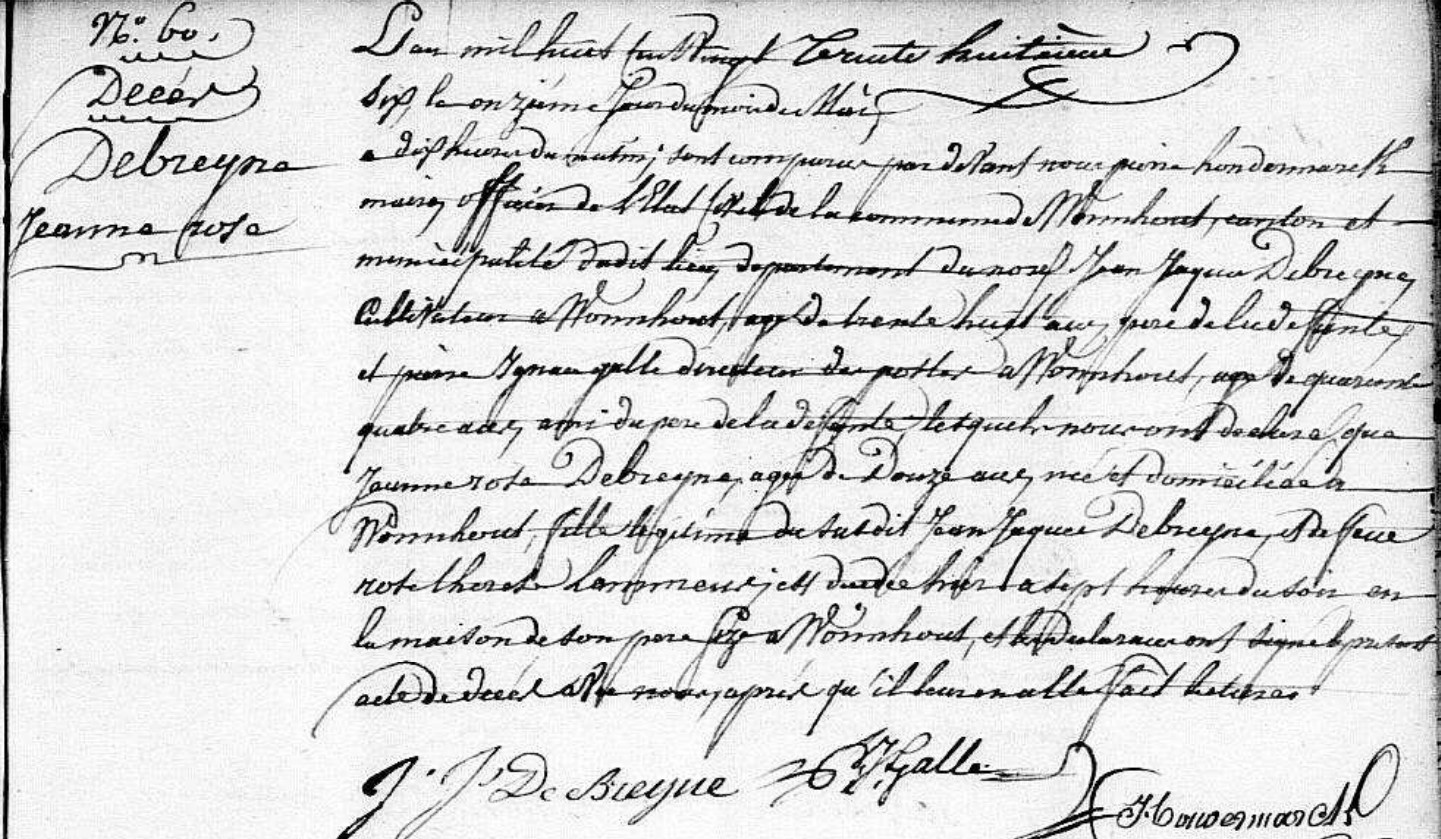 N.° 60.
Décès
Debreyne
Jeanne rose
L'an mil huit cent vingt
Six, le onzième jour du mois de Mai,
a dix heures du matin; sont comparus par devant nous pierre
maire, officier de l'Etat Civil de la commune de Wormhout, canton et
municipalité dudit lieu, departement du nord Jean Jaques Debreyne,
Cultivateur a Wormhout, agé de trente huit ans, pere de la defunte,
et pierre Ignace galle directeur des postes a Wormhout, agé de quarante
quatre ans, ami du pere de la defunte, lesquels nous ont declaré, que
Jeanne rose Debreyne, agée de Douze ans, née et domiciliée a
Wormhout, fille legitime du susdit Jean Jaques Debreyne, et de feue
rose therese Lammens; est decedée hier a sept heures du soir en
la maison de son pere size a Wormhout, et les Declarans ont signé le present
acte de décès avec nous, après qu'il leur en a été fait lecture.
J. J. De Breyne
P. I. Galle